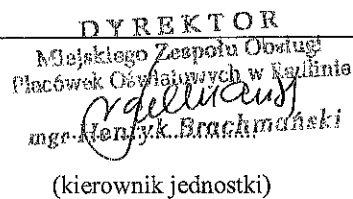 DYREKTOR
Miejskiego Zespołu Obsługi
Placówek Oświatowych w Radlinie
mgr Henryk Brachmański
(kierownik jednostki)